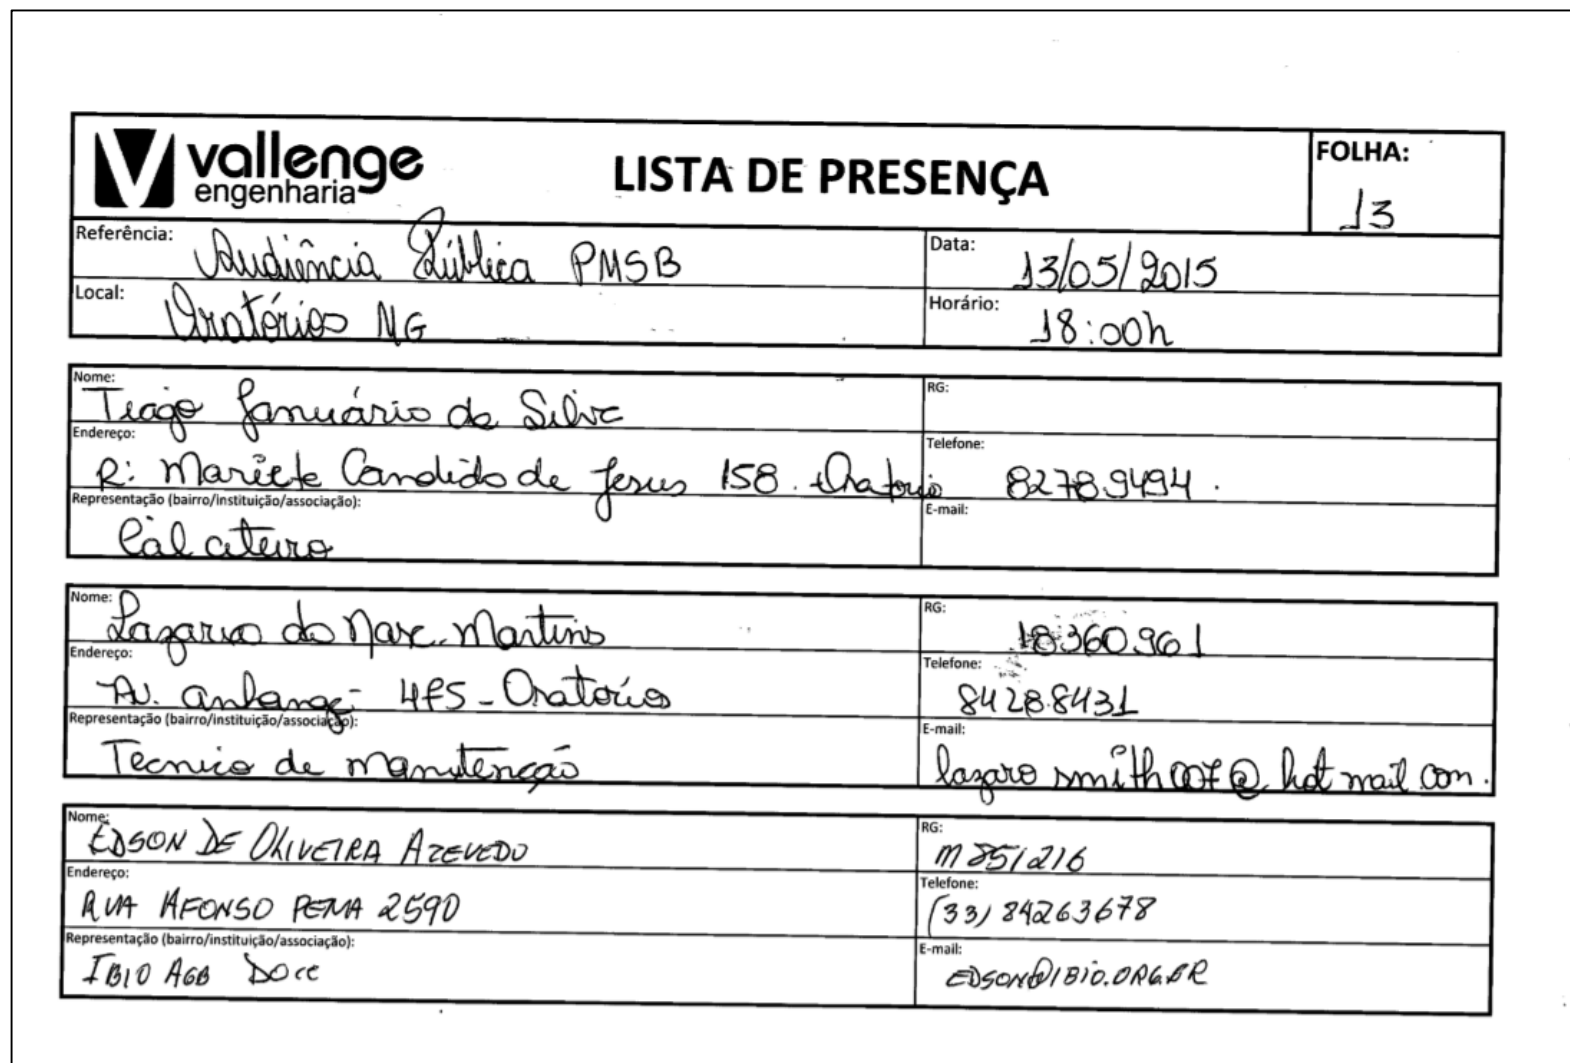 vallenge
engenharia
LISTA DE PRESENÇA
FOLHA:
13
Referência: Audiência Pública PMSB
Data: 13/05/2015
Local: Oratórios MG
Horário: 18:00h
Nome: Tiago Januário da Silva
RG:
Endereço: R: Mariete Candido de Jesus 158. Oratorio
Telefone: 8278.9494.
Representação (bairro/instituição/associação): Calceteiro
E-mail:
Nome: Lazaro do Nasc. Martins
RG: 18360.961
Endereço: Av. 475 - Oratorios
Telefone: 8428.8431
Representação (bairro/instituição/associação): Tecnico de manutenção
E-mail: lazaro smith007@hotmail com.
Nome: EDSON DE OLIVEIRA AZEVEDO
RG: M 851216
Endereço: RUA AFONSO PENA 2590
Telefone: (33) 84263678
Representação (bairro/instituição/associação): IBIO AGB DOCE
E-mail: EDSON@IBIO.ORG.BR